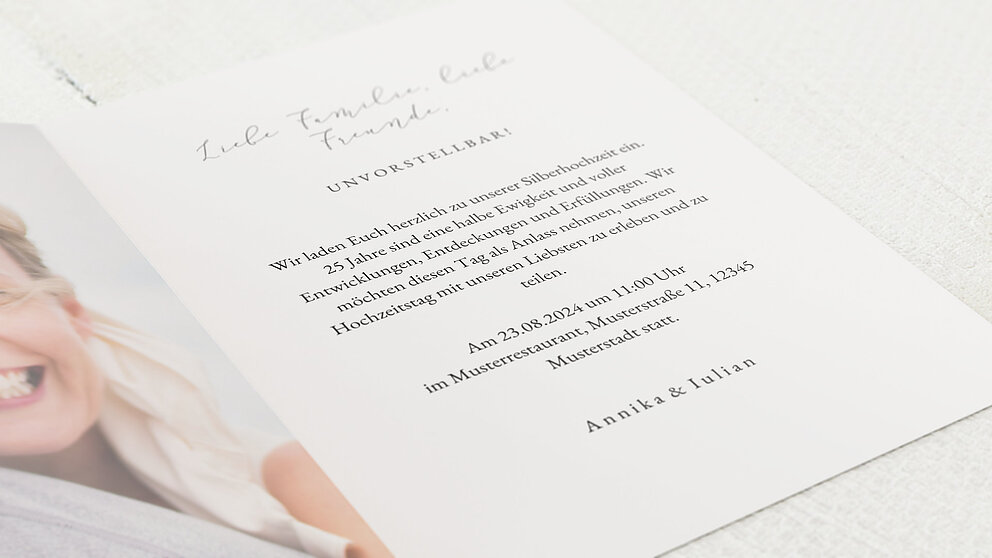 Liebe Familie, liebe
Freunde,
UNVORSTELLBAR!
Wir laden Euch herzlich zu unserer Silberhochzeit ein.
25 Jahre sind eine halbe Ewigkeit und voller
Entwicklungen, Entdeckungen und Erfüllungen. Wir
möchten diesen Tag als Anlass nehmen, unseren
Hochzeitstag mit unseren Liebsten zu erleben und zu
teilen.
Am 23.08.2024 um 11:00 Uhr
im Musterrestaurant, Musterstraße 11, 12345
Musterstadt statt.
Annika & Iulian